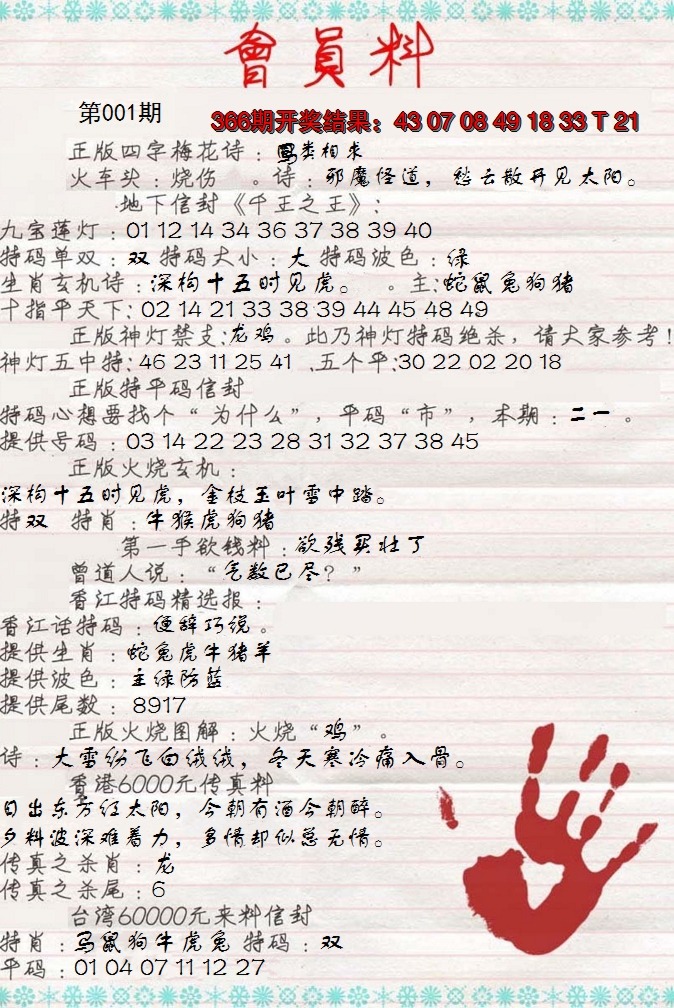 會員料
第001期
366期开奖结果：43 07 08 49 18 33 T 21
正版四字梅花诗：鳳类相求
火车头：烧伤 。诗：邪魔怪道，愁云散开见太阳。
地下信封《千王之王》：
九宝莲灯：01 12 14 34 36 37 38 39 40
特码单双：双 特码大小：大 特码波色：绿
生肖玄机诗：深构十五时见虎。 。主：蛇鼠兔狗猪
十指平天下：02 14 21 33 38 39 44 45 48 49
正版神灯禁支：龙鸡。此乃神灯特码绝杀，请大家参考！
神灯五中特：46 23 11 25 41 .五个平：30 22 02 20 18
正版特平码信封
特码心想要找个“为什么”，平码“市”，本期：二一 。
提供号码：03 14 22 23 28 31 32 37 38 45
正版火烧玄机：
深构十五时见虎，金枝玉叶雪中踏。
特双 特肖：牛猴虎狗猪
第一手欲钱料：欲残买壮了
曾道人说：“气数已尽？”
香江特码精选报：
香江话特码：便辞巧说。
提供生肖：蛇兔虎牛猪羊
提供波色：主绿防蓝
提供尾数：8917
正版火烧图解：火烧“鸡”。
诗：大雪纷飞白绒绒，冬天寒冷痛入骨。
香港6000元传真料
日出东方红太阳，今朝有酒今朝醉。
夕料波深难着力，多情却似总无情。
传真之杀肖：龙
传真之杀尾：6
台湾60000元来料信封
特肖：马鼠狗牛虎兔 特码：双
平码：01 04 07 11 12 27